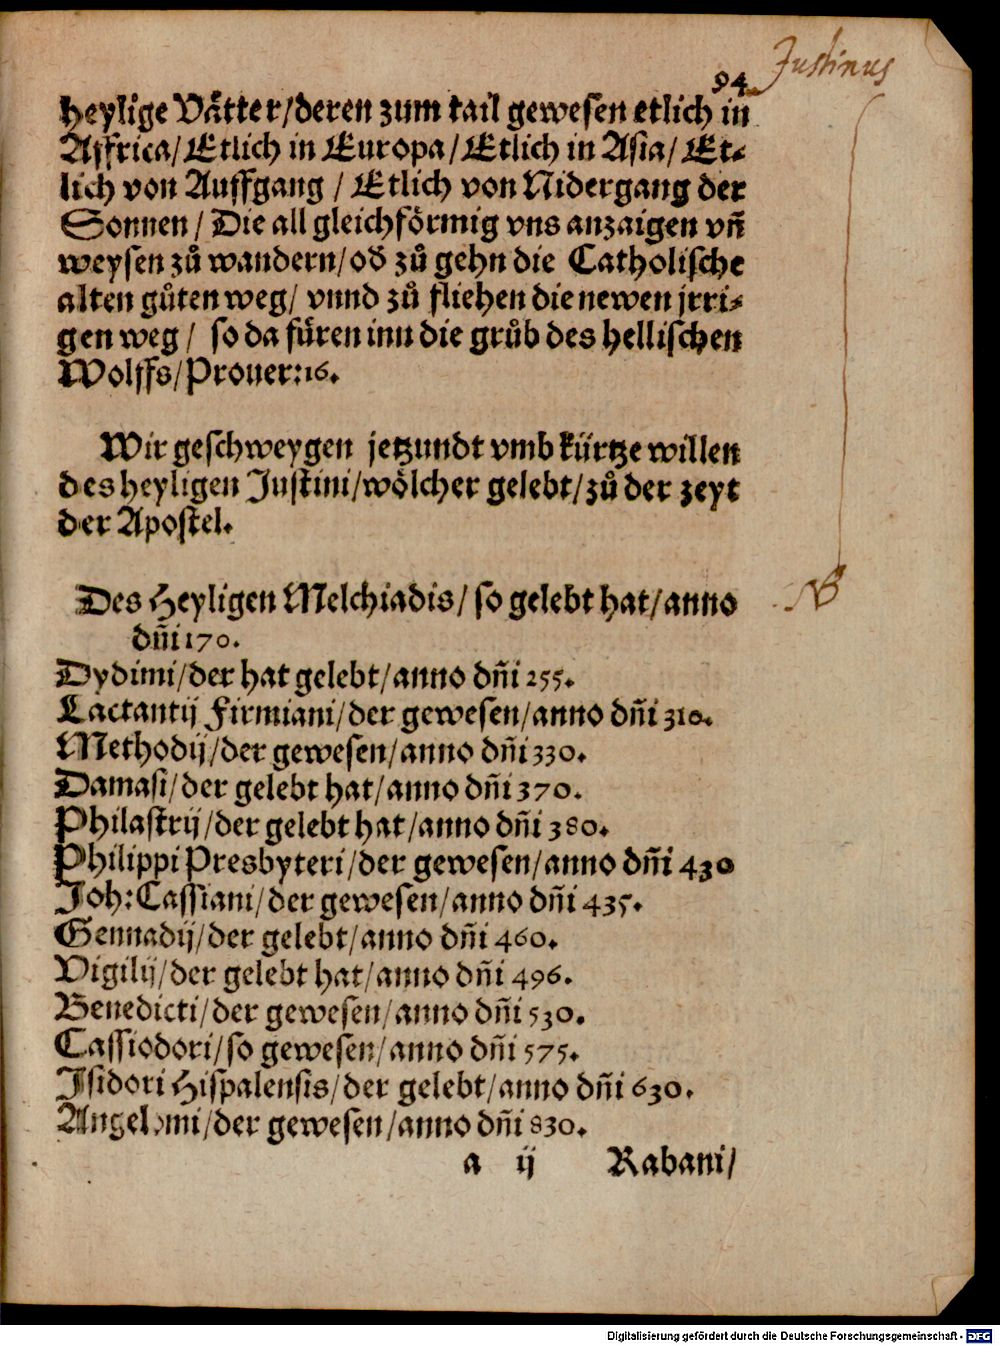 94
Justinus
heylige Vätter/deren zum tail gewesen etlich in
Affrica/Etlich in Europa/Etlich in Asia/Et⸗
lich von Auffgang / Etlich von Nidergang der
Sonnen / Die all gleichförmig vns anzaigen vñ
weysen zů wandern/ob zů gehn die Catholische
alten gůten weg/ vnnd zů fliehen die newen jrri⸗
gen weg / so da füren inn die grůb des hellischen
Wolffs/Prouer:16.
Wir geschweygen jetzundt vmb kürtze willen
des heyligen Justini/wölcher gelebt/zů der zeyt
der Apostel.
Des Heyligen Melchiadis/ so gelebt hat/anno
NB
dñi 170.
Dydimi/der hat gelebt/anno dñi 255.
Lactantij Firmiani/der gewesen/anno dñi 310.
Methodij/der gewesen/anno dñi 330.
Damasi/der gelebt hat/anno dñi 370.
Philastrij/der gelebt hat/anno dñi 380.
Philippi Presbyteri/der gewesen/anno dñi 430
Joh:Cassiani/der gewesen/anno dñi 435.
Gennadij/der gelebt/anno dñi 460.
Vigilij/der gelebt hat/anno dñi 496.
Benedicti/der gewesen/anno dñi 530.
Cassiodori/so gewesen/anno dñi 575.
Isidori Hispalensis/der gelebt/anno dñi 630.
Angelomi/der gewesen/anno dñi 830.
a ij Rabani/
Digitalisierung gefördert durch die Deutsche Forschungsgemeinschaft - DFG